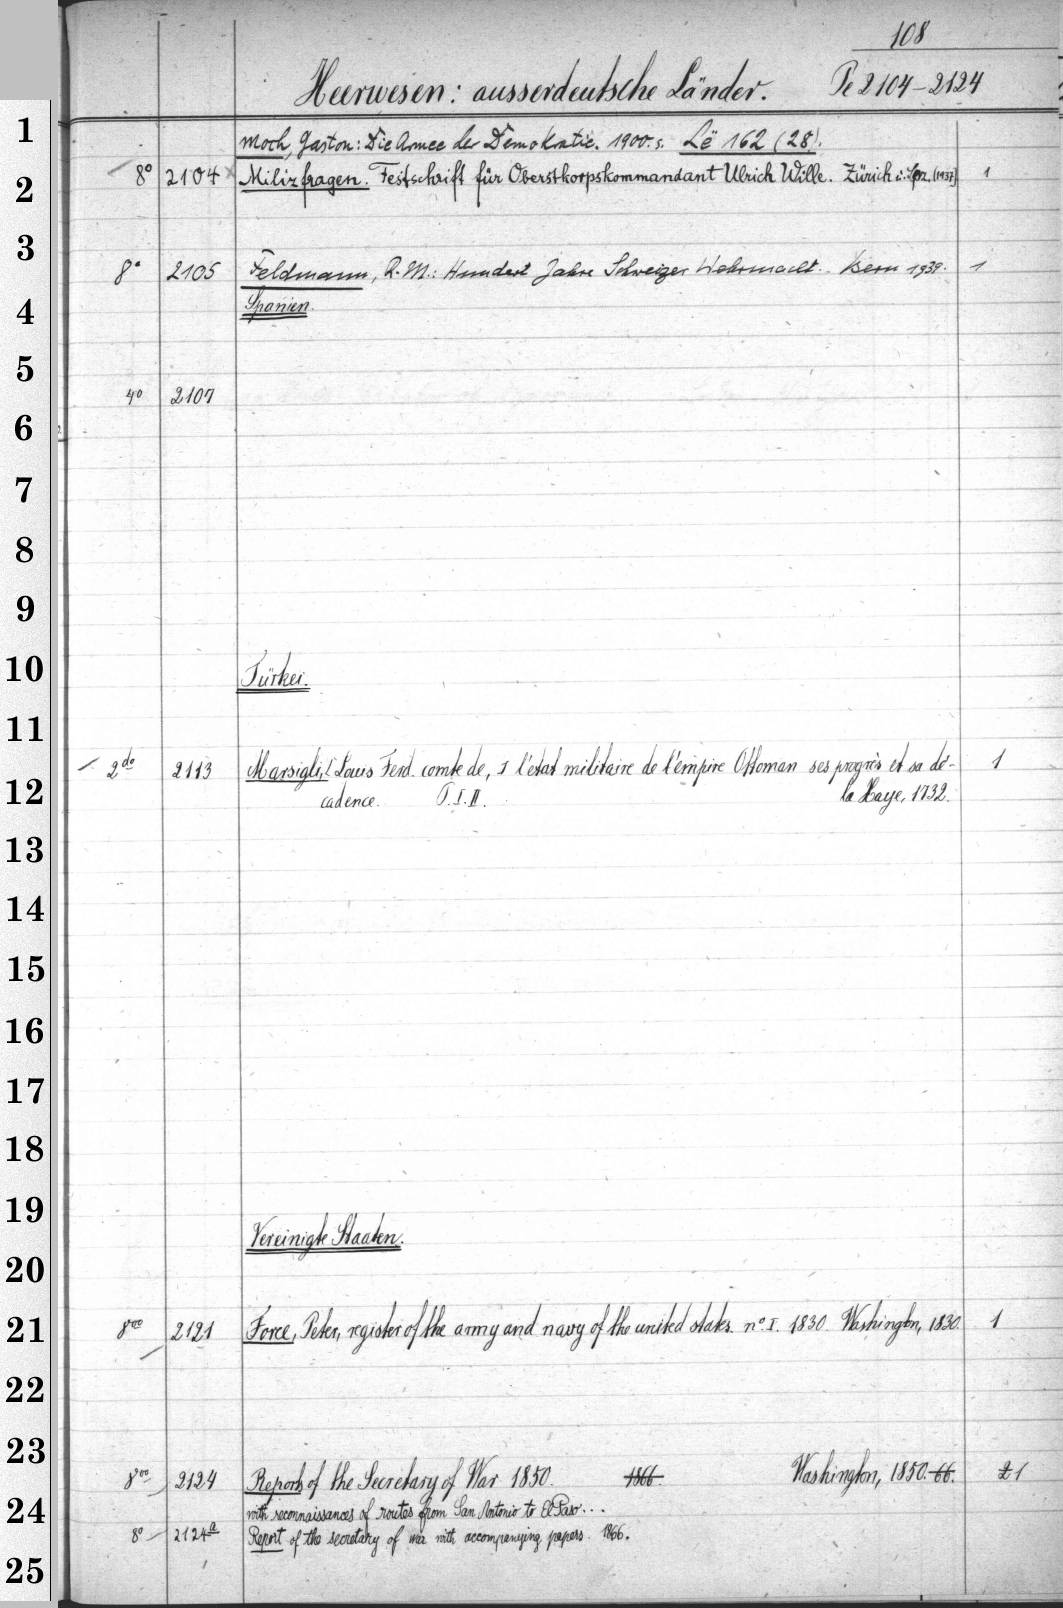 108
Heerwesen: ausserdeutsche Länder. Pe 2104-2124
1
Moch, Gaston: Die Armee der Demokratie. 1900. s. Lë 162 (28).
2
8° 2104 Milizfragen. Festschrift für Oberstkorpskommandant Ulrich Wille. Zürich [1937] 1
3
8° 2105 Feldmann, R. M.: Hundert Jahre Schweizer Wehrmacht. Bern 1939. 1
4
Spanien.
5
4° 2107
6
7
8
9
10
Türkei.
11
2do 2113 Marsigli, Louis Ferd. comte de, l'etat militaire de l'émpire Ottoman ses progrès et sa dé- 1
12
cadence. T. I. II. la Haye, 1732.
13
14
15
16
17
18
19
Vereinigte Staaten.
20
21
8vo 2121 Force, Peter, register of the army and navy of the united states. n° I. 1830 Washington, 1830. 1
22
23
8vo 2124 Reports of the Secretary of War 1850. 1866. Washington, 1850.-66. 2 1
24
with reconnaissances of routes from San Antonio to El Paso...
8° 2124a Report of the secretary of war with accompanying papers. 1866.
25